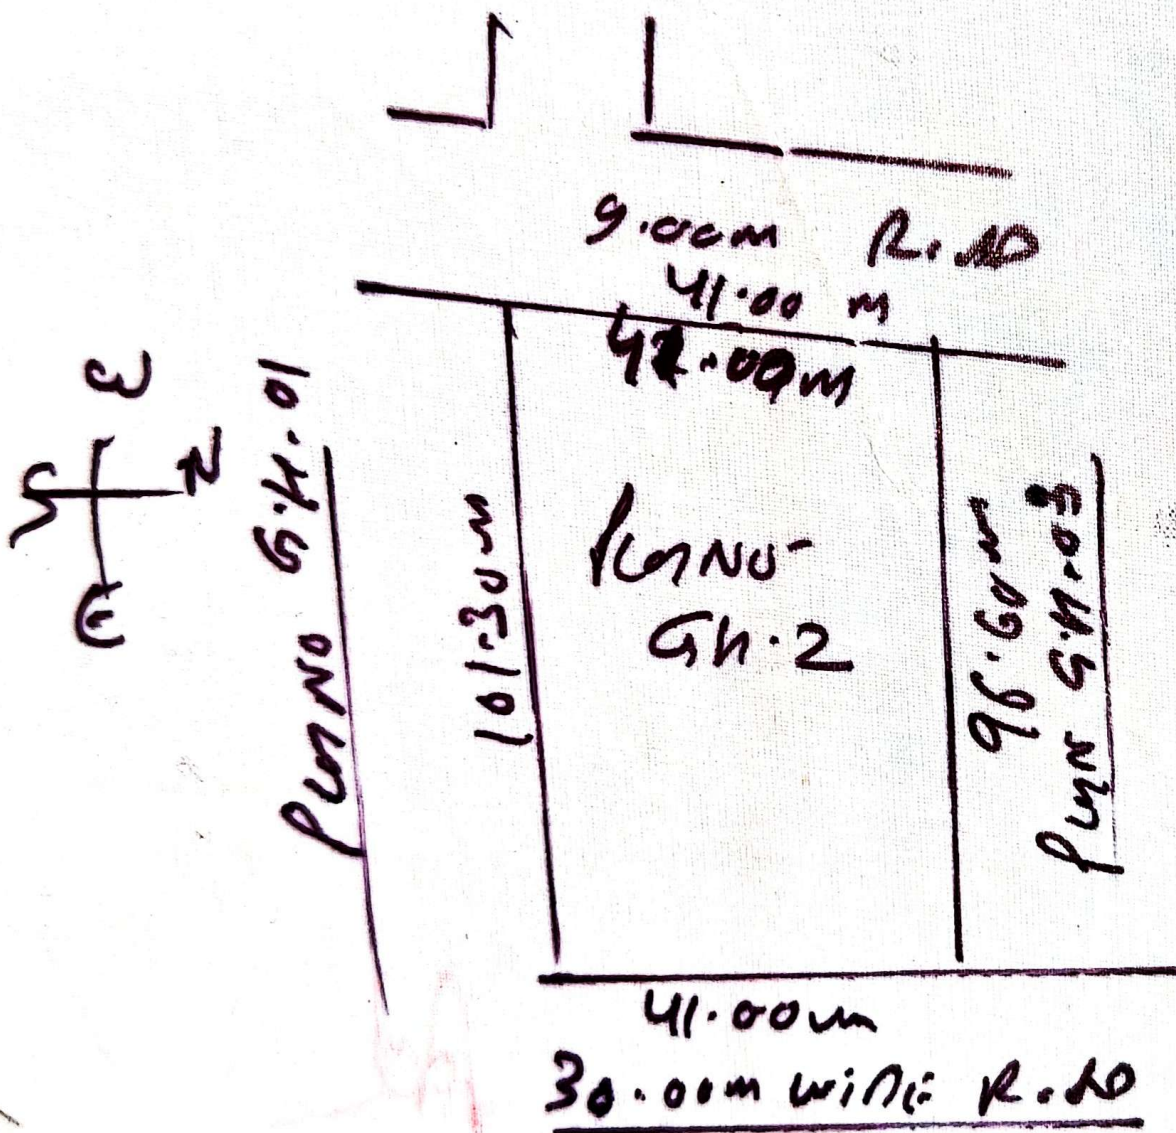 9.00m R.D
41.00 m
42.00m
W
S N
E
PLOT NO G.H.01
101.30m
PLOT NO-
GH.2
96.60m
PLOT N G.H.03
41.00m
30.00m WIDE R.D